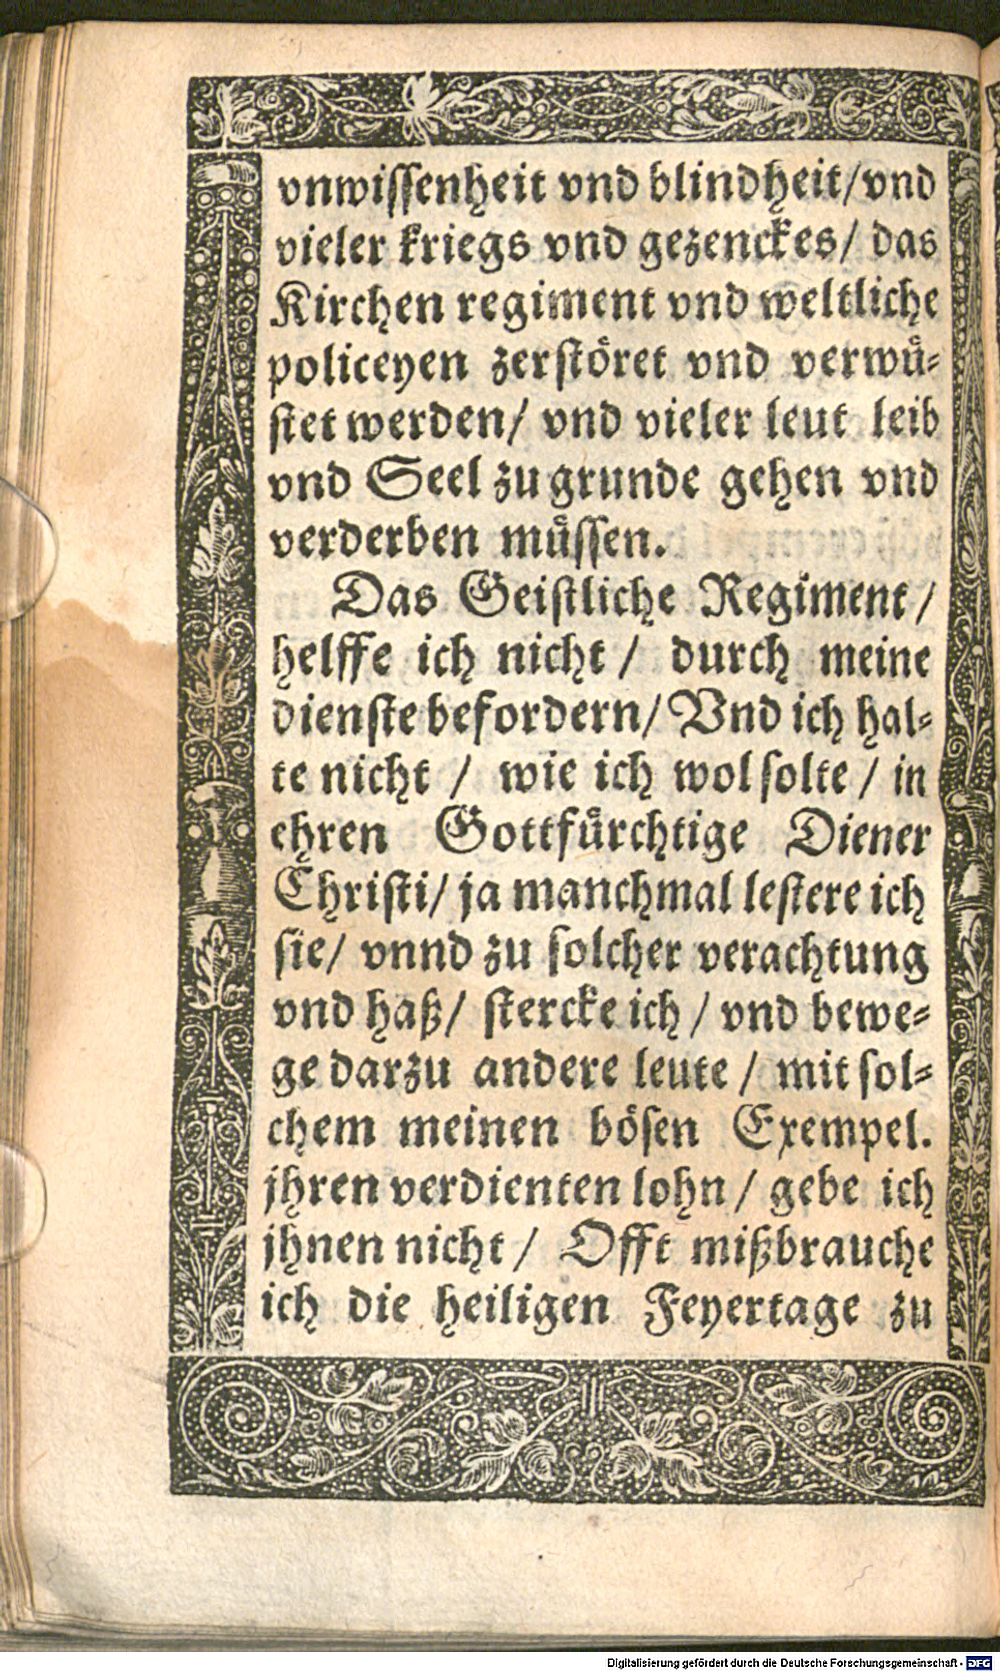 vnwissenheit vnd blindheit/vnd
vieler kriegs vnd gezenckes/ das
Kirchen regiment vnd weltliche
policeyen zerstöret vnd verwü-
stet werden/ vnd vieler leut leib
vnd Seel zu grunde gehen vnd
verderben müssen.
Das Geistliche Regiment/
helffe ich nicht/ durch meine
dienste befordern/ Vnd ich hal-
te nicht / wie ich wol solte / in
ehren Gottfürchtige Diener
Christi/ ja manchmal lestere ich
sie/ vnnd zu solcher verachtung
vnd haß/ stercke ich / vnd bewe-
ge darzu andere leute / mit sol-
chem meinen bösen Exempel.
jhren verdienten lohn / gebe ich
jhnen nicht / Offt mißbrauche
ich die heiligen Feyertage zu
Digitalisierung gefördert durch die Deutsche Forschungsgemeinschaft - DFG